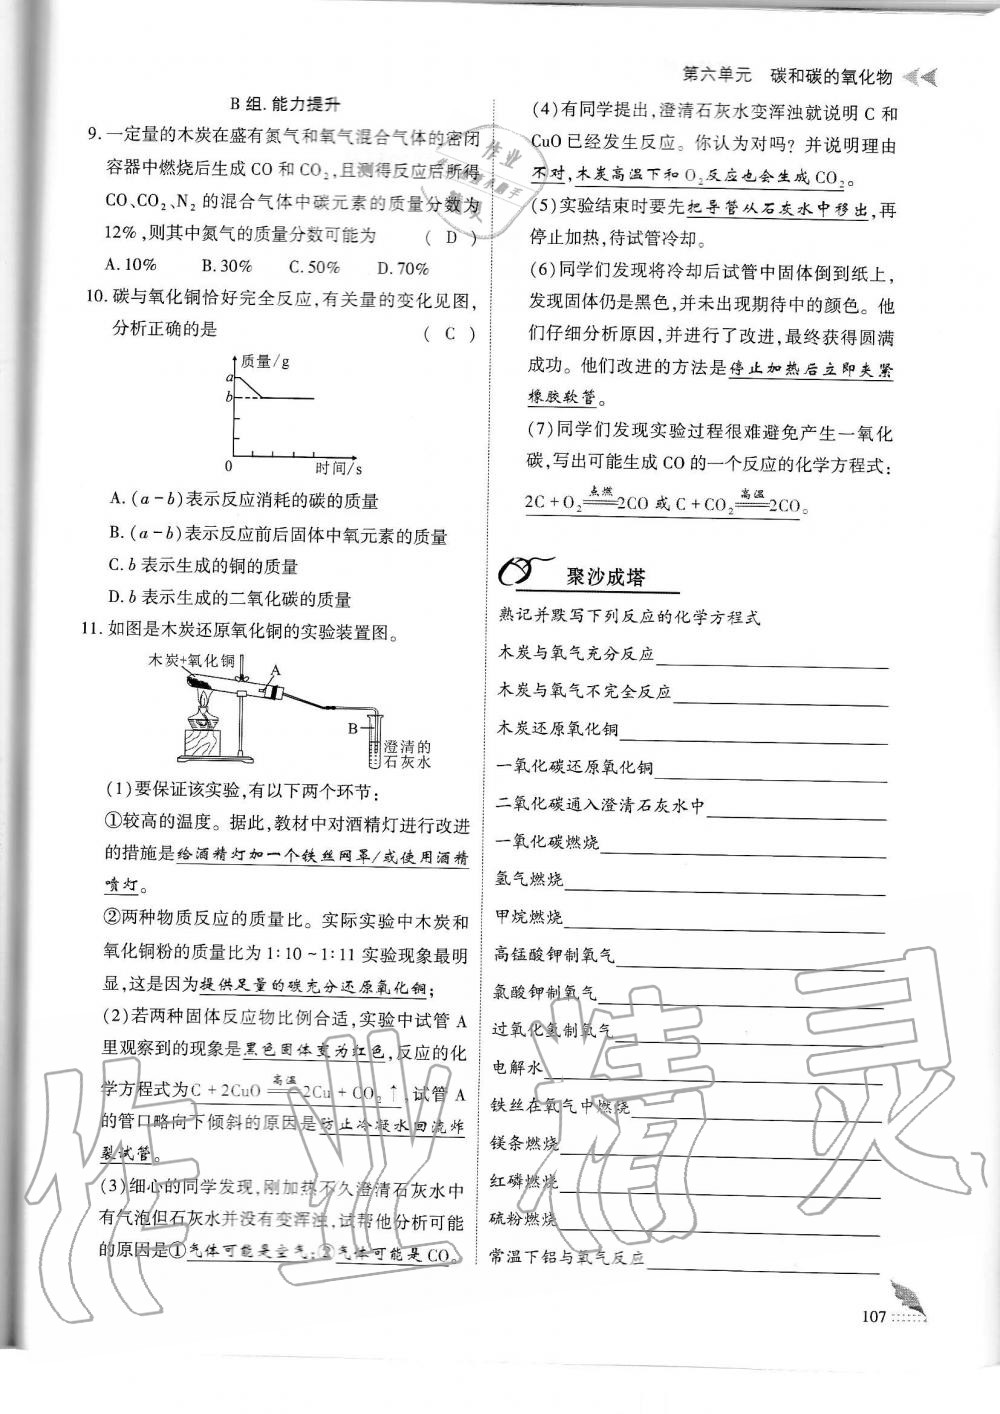 第六单元 碳和碳的氧化物
B 组.能力提升
9. 一定量的木炭在盛有氮气和氧气混合气体的密闭
容器中燃烧后生成 CO 和 CO₂,且测得反应后所得
CO、CO₂、N₂ 的混合气体中碳元素的质量分数为
12%,则其中氮气的质量分数可能为 ( D )
A. 10% B. 30% C. 50% D. 70%
10. 碳与氧化铜恰好完全反应,有关量的变化见图,
分析正确的是 ( C )
质量/g
a
b
0 时间/s
A. (a-b)表示反应消耗的碳的质量
B. (a-b)表示反应前后固体中氧元素的质量
C. b 表示生成的铜的质量
D. b 表示生成的二氧化碳的质量
11. 如图是木炭还原氧化铜的实验装置图。
木炭+氧化铜
A
B
澄清的
石灰水
(1)要保证该实验,有以下两个环节:
①较高的温度。据此,教材中对酒精灯进行改进
的措施是给酒精灯加一个铁丝网罩/或使用酒精
喷灯。
②两种物质反应的质量比。实际实验中木炭和
氧化铜粉的质量比为 1:10～1:11 实验现象最明
显,这是因为提供足量的碳充分还原氧化铜;
(2)若两种固体反应物比例合适,实验中试管 A
里观察到的现象是黑色固体变为红色,反应的化
学方程式为C + 2CuO 高温 2Cu + CO₂↑,试管 A
的管口略向下倾斜的原因是防止冷凝水回流炸
裂试管。
(3)细心的同学发现,刚加热不久澄清石灰水中
有气泡但石灰水并没有变浑浊,试帮他分析可能
的原因是①气体可能是空气;②气体可能是 CO。
(4)有同学提出,澄清石灰水变浑浊就说明 C 和
CuO 已经发生反应。你认为对吗？并说明理由
不对,木炭高温下和 O₂反应也会生成 CO₂。
(5)实验结束时要先把导管从石灰水中移出,再
停止加热,待试管冷却。
(6)同学们发现将冷却后试管中固体倒到纸上,
发现固体仍是黑色,并未出现期待中的颜色。他
们仔细分析原因,并进行了改进,最终获得圆满
成功。他们改进的方法是停止加热后立即夹紧
橡胶软管。
(7)同学们发现实验过程很难避免产生一氧化
碳,写出可能生成 CO 的一个反应的化学方程式:
2C + O₂ 点燃 2CO 或 C + CO₂ 高温 2CO。
聚沙成塔
熟记并默写下列反应的化学方程式
木炭与氧气充分反应
木炭与氧气不完全反应
木炭还原氧化铜
一氧化碳还原氧化铜
二氧化碳通入澄清石灰水中
一氧化碳燃烧
氢气燃烧
甲烷燃烧
高锰酸钾制氧气
氯酸钾制氧气
过氧化氢制氧气
电解水
铁丝在氧气中燃烧
镁条燃烧
红磷燃烧
硫粉燃烧
常温下铝与氧气反应
107
作业精灵